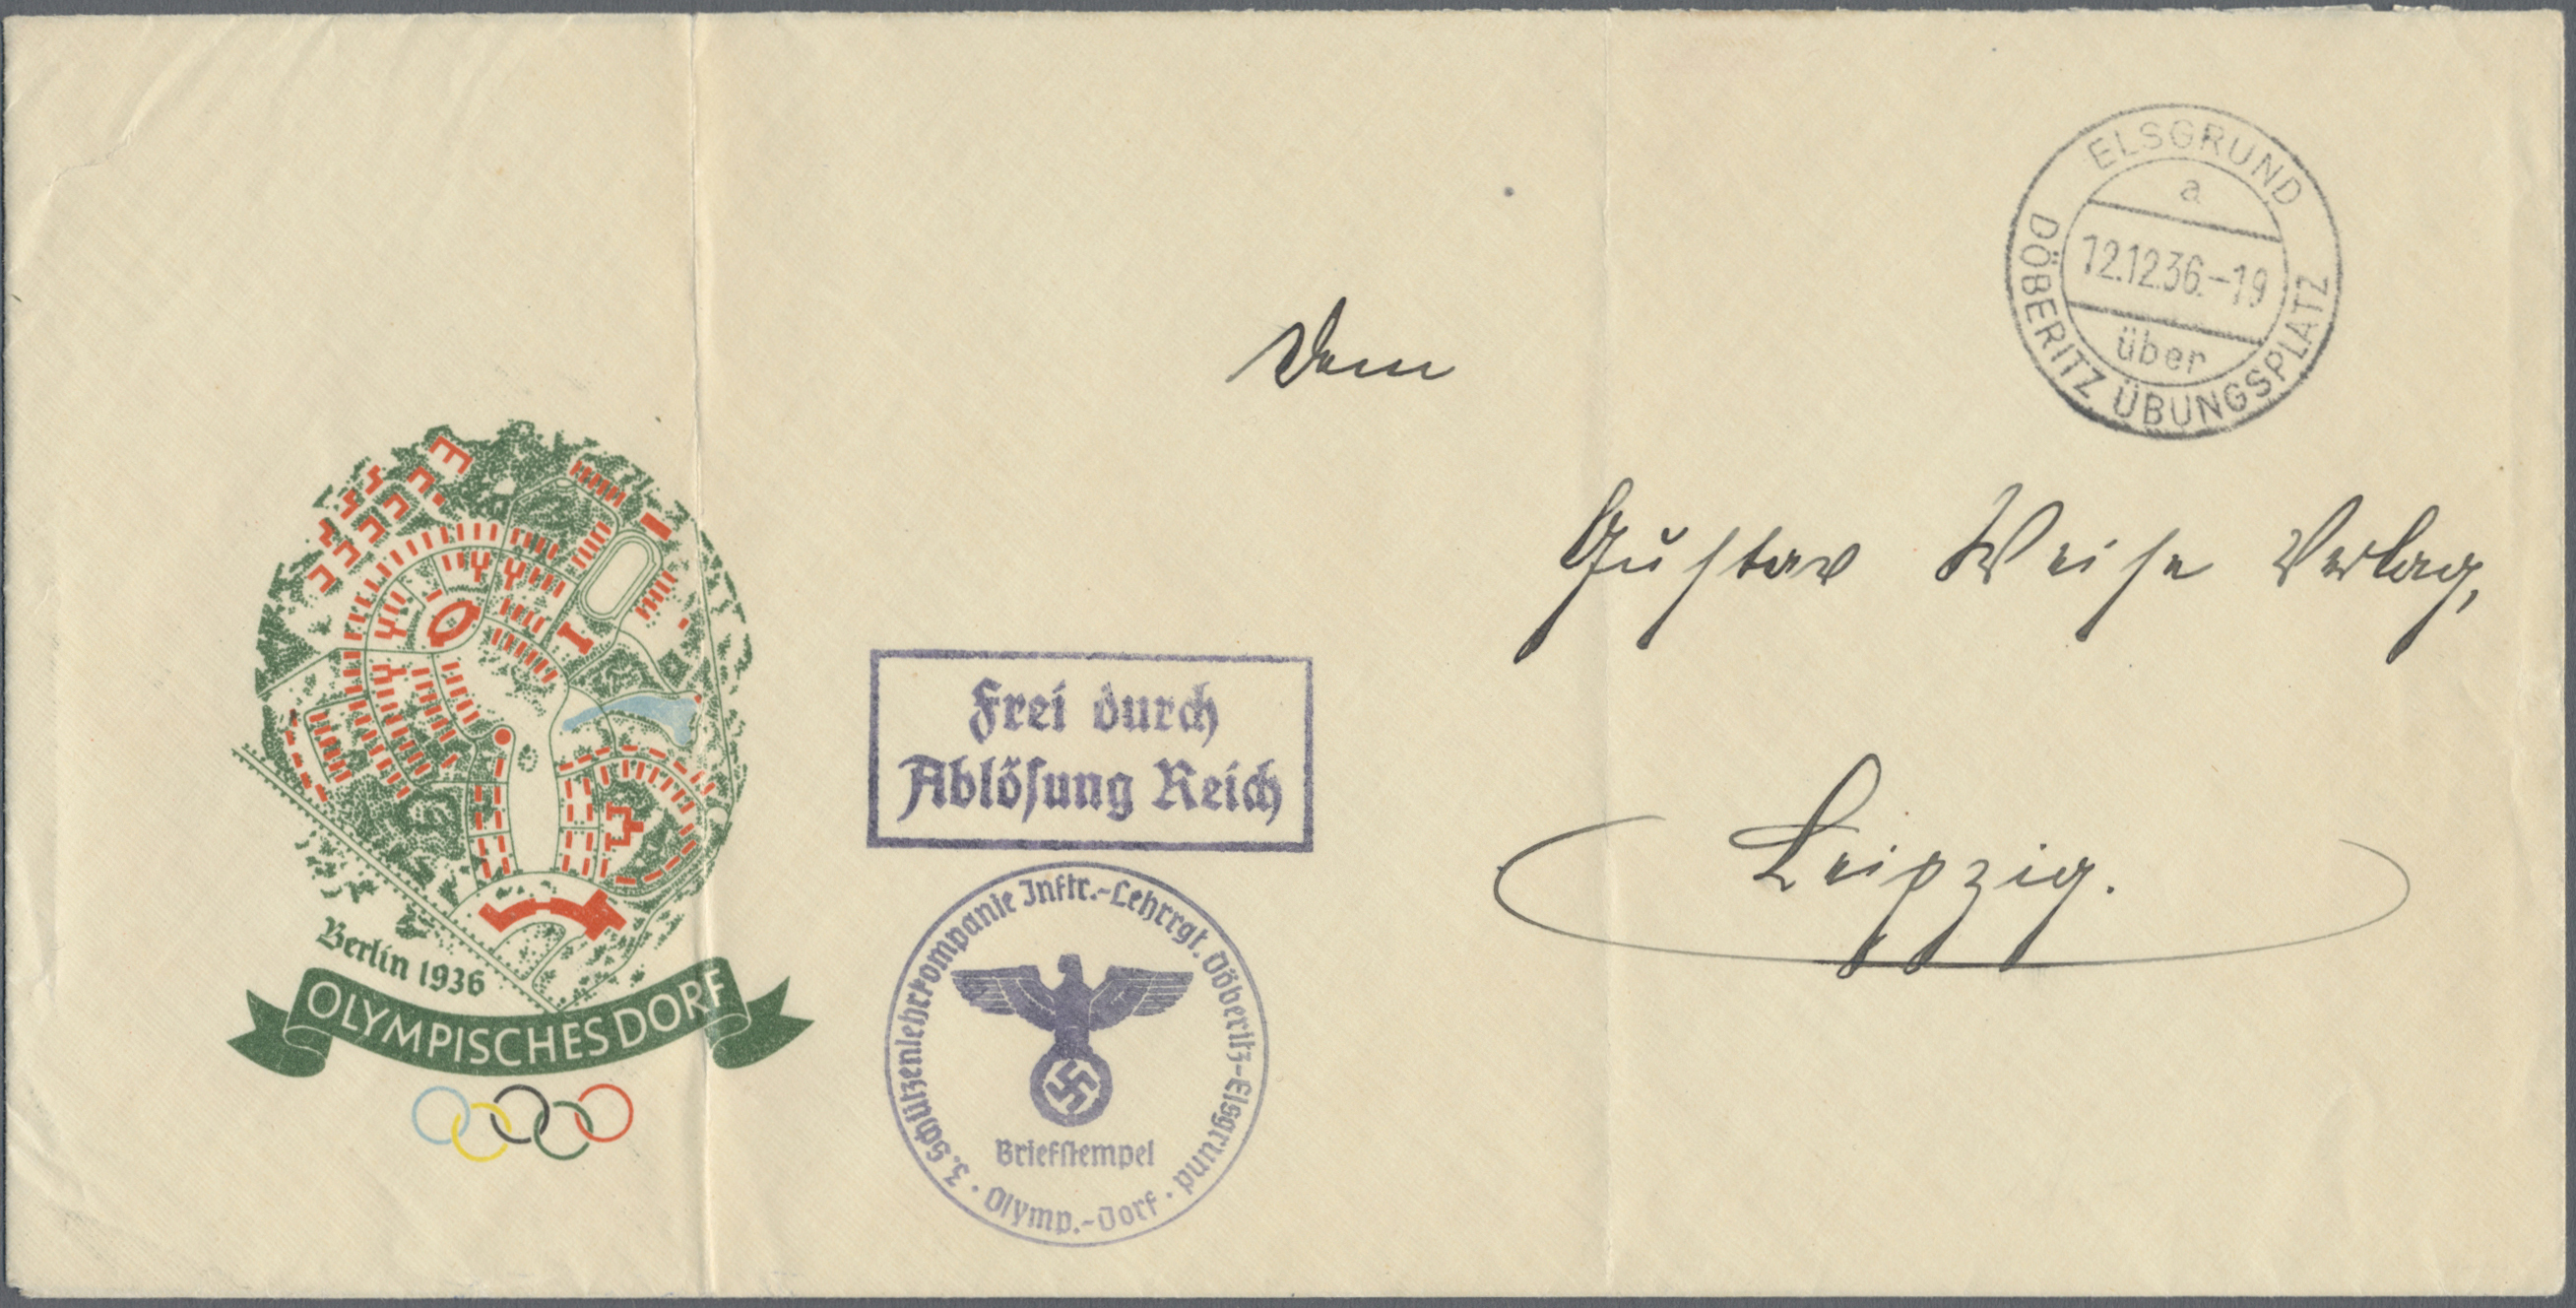 ELSGRUND
a
12.12.36.-19
über
DÖBERITZ ÜBUNGSPLATZ
Dem
Gustav Weise Verlag,
Leipzig.
Frei durch
Ablösung Reich
3. Schützenlehrkompanie Inftr.-Lehrrgt. Döberitz-Elsgrund
Briefstempel
· Olymp.-Dorf ·
Berlin 1936
OLYMPISCHES DORF